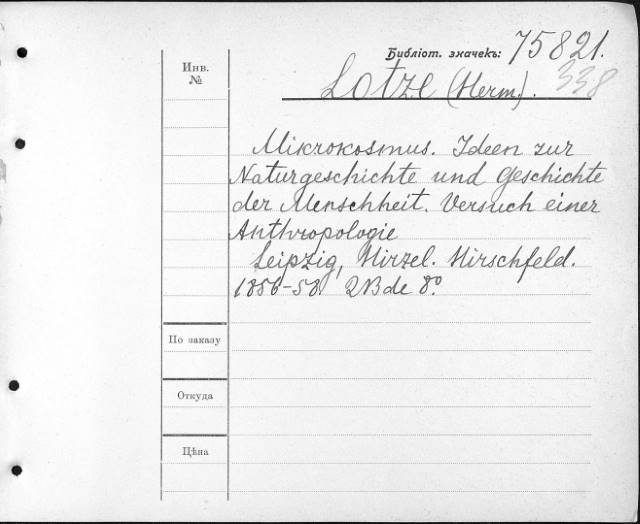 Библiот. значекъ: 75821.
338
Инв.
№
Lotze (Herm.).
Mikrokosmus. Ideen zur
Naturgeschichte und Geschichte
der Menschheit. Versuch einer
Anthropologie
Leipzig, Hirzel. Hirschfeld.
1856-58. 2 Bde 8º
По заказу
Откуда
Цѣна